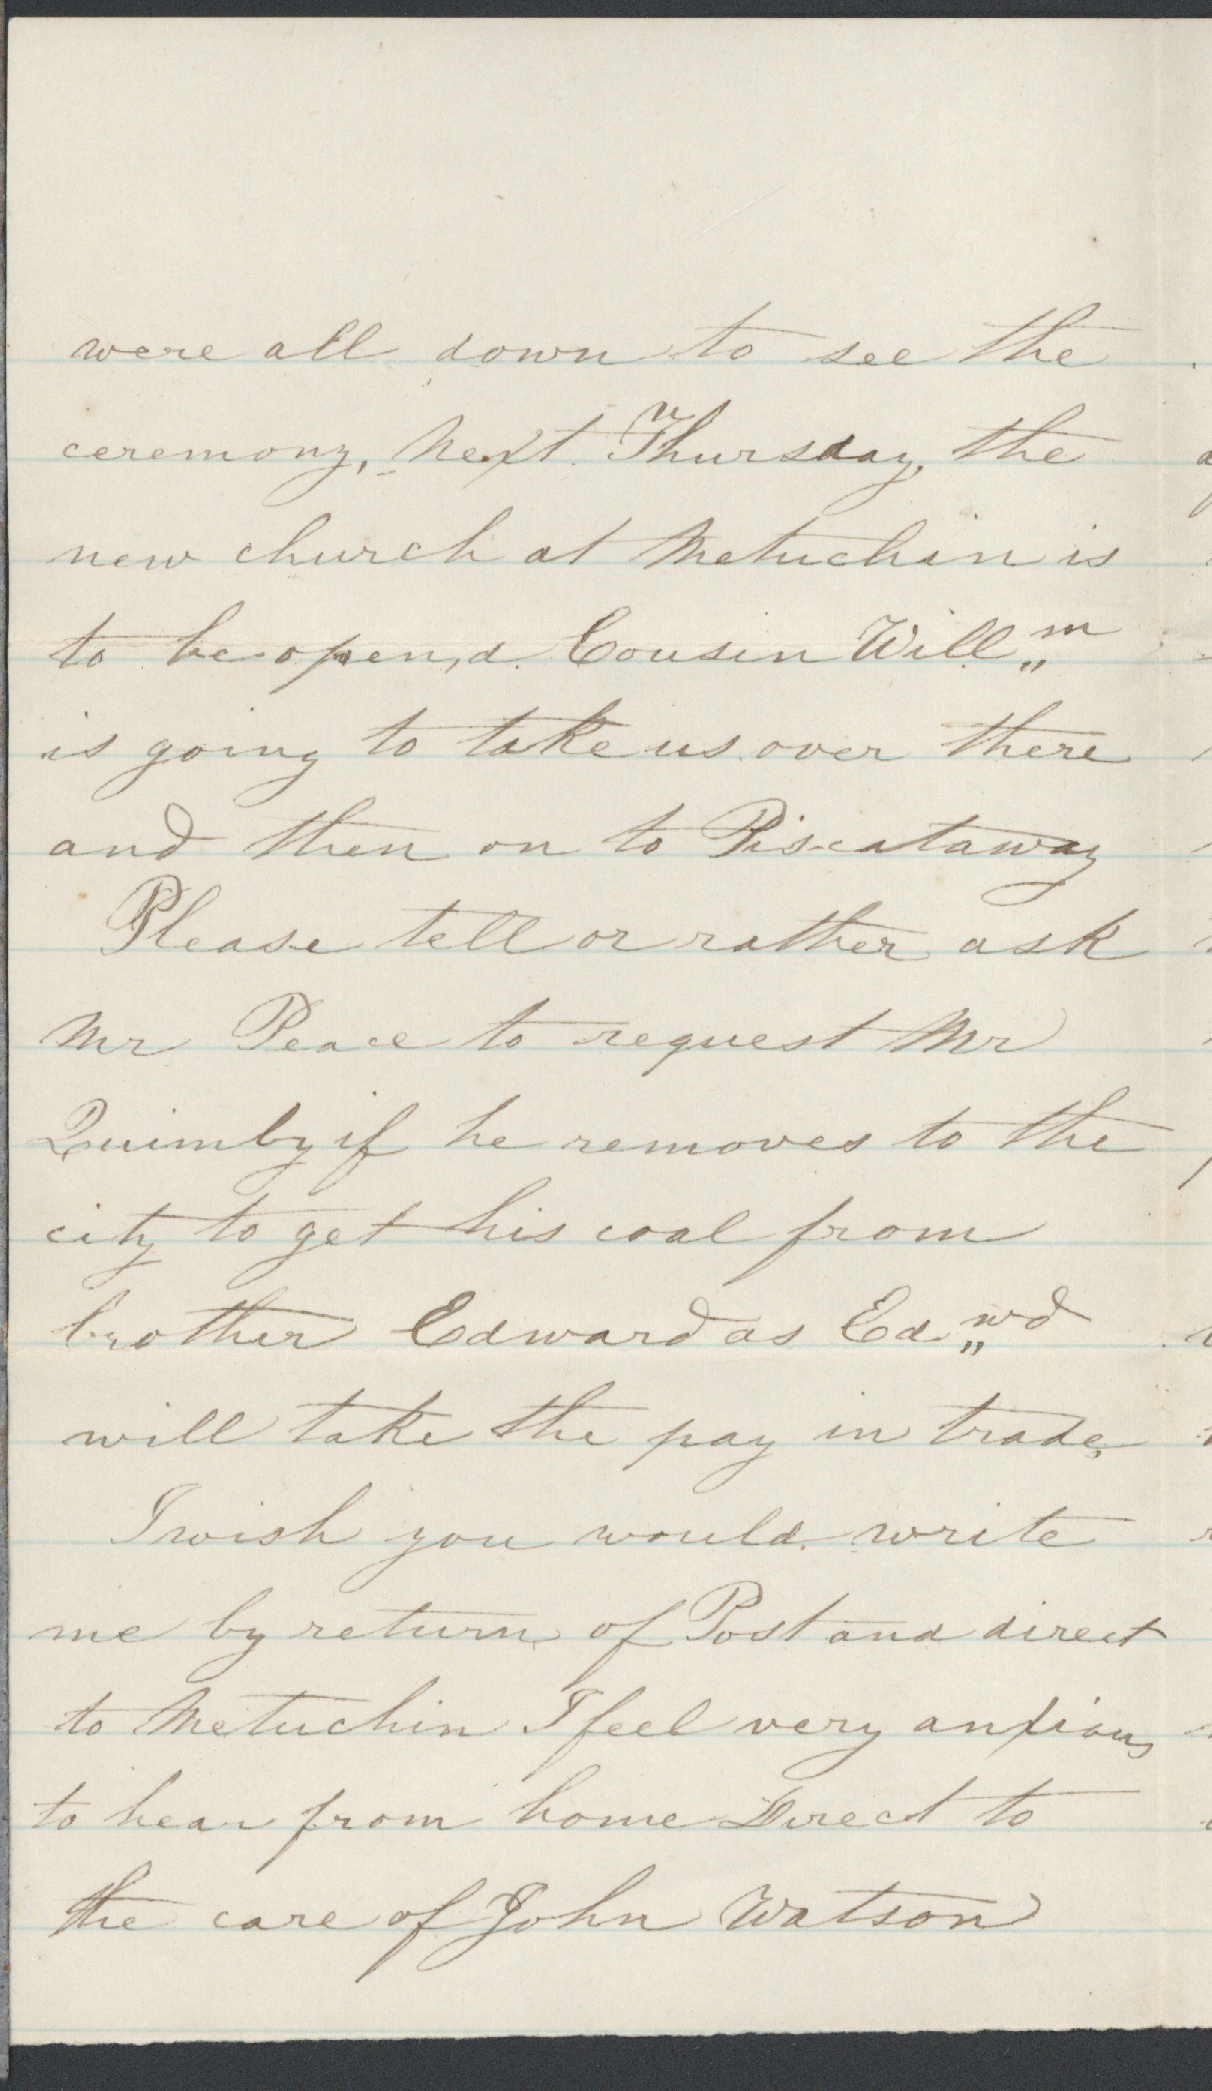 were all down to see the
ceremony, Next Thursday, the
new church at Metuchin is
to be open,d Cousin Will,,m
is going to take us over there
and then on to Piscataway
Please tell or rather ask
Mr Peace to request Mr
Quimby if he removes to the
city to get his coal from
brother Edward as Ed,,wd
will take the pay in trade,
I wish you would write
me by return of Post and direct
to Metuchin I feel very anxious
to hear from home Direct to
the care of John Watson